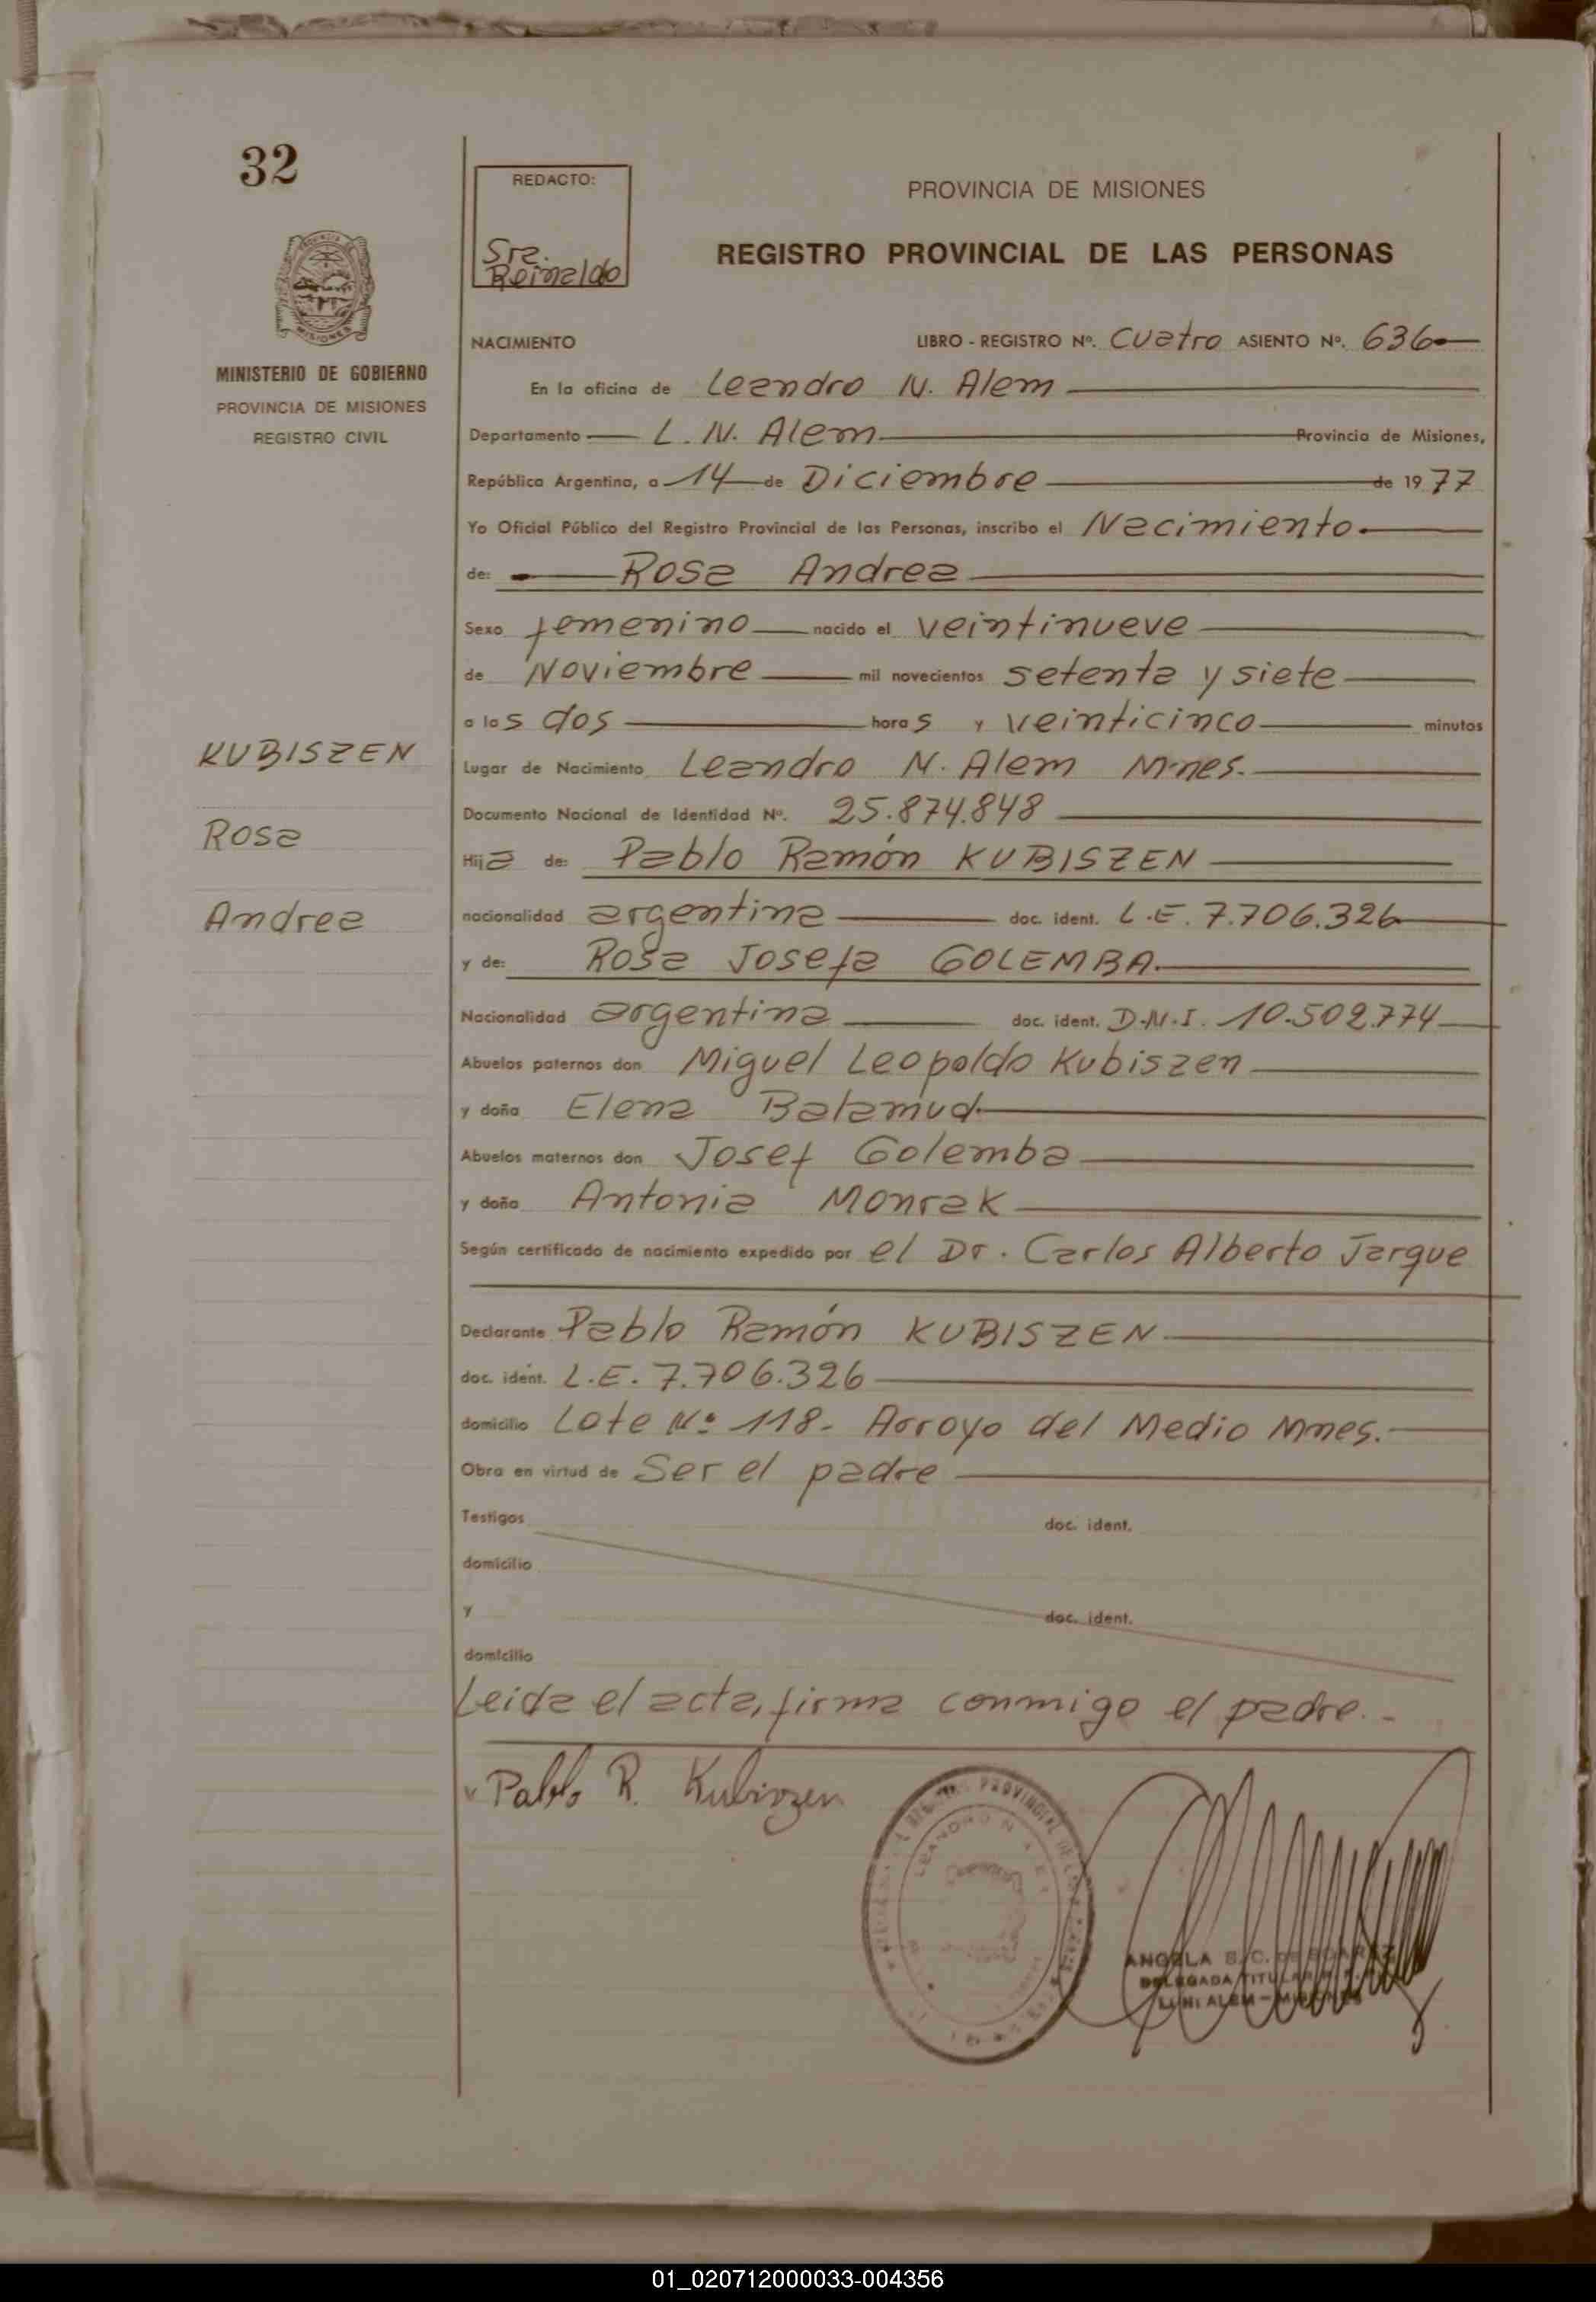 32
REDACTO:
Sra.
Reinaldo
PROVINCIA DE MISIONES
REGISTRO PROVINCIAL DE LAS PERSONAS
MINISTERIO DE GOBIERNO
PROVINCIA DE MISIONES
REGISTRO CIVIL
NACIMIENTO LIBRO - REGISTRO Nº. Cuatro ASIENTO Nº. 636
En la oficina de Leandro N. Alem
Departamento L. N. Alem Provincia de Misiones,
República Argentina, a 14 de Diciembre de 1977
Yo Oficial Público del Registro Provincial de las Personas, inscribo el Nacimiento.
de: Rosa Andrea
Sexo femenino nacido el veintinueve
de Noviembre mil novecientos setenta y siete
a las dos horas y veinticinco minutos
Lugar de Nacimiento Leandro N. Alem Mnes.
Documento Nacional de Identidad Nº. 25.874.848
Hija de: Pablo Ramón KUBISZEN
nacionalidad argentina doc. ident. L.E. 7.706.326
y de: Rosa Josefa GOLEMBA.
Nacionalidad argentina doc. ident. D.N.I. 10.502.774
Abuelos paternos don Miguel Leopoldo Kubiszen
y doña Elena Balamud
Abuelos maternos don Josef Golemba
y doña Antonia Monrak
Según certificado de nacimiento expedido por el Dr. Carlos Alberto Jarque
Declarante Pablo Ramón KUBISZEN
doc. ident. L.E. 7.706.326
domicilio Lote Nº 118- Arroyo del Medio Mnes.
Obra en virtud de Ser el padre
Testigos doc. ident.
domicilio
y doc. ident.
domicilio
Leida el acta, firma conmigo el padre.-
KUBISZEN
Rosa
Andrea
Pablo R. Kubiszen
PROVINCIAL DE
LEANDRO N.
ANGELA S. C. DE
DELEGADA TITULAR
L. N. ALEM - MISIONES
01_020712000033-004356